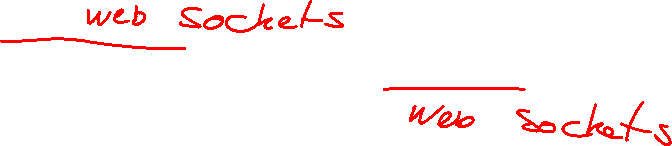 web sockets
web sockets